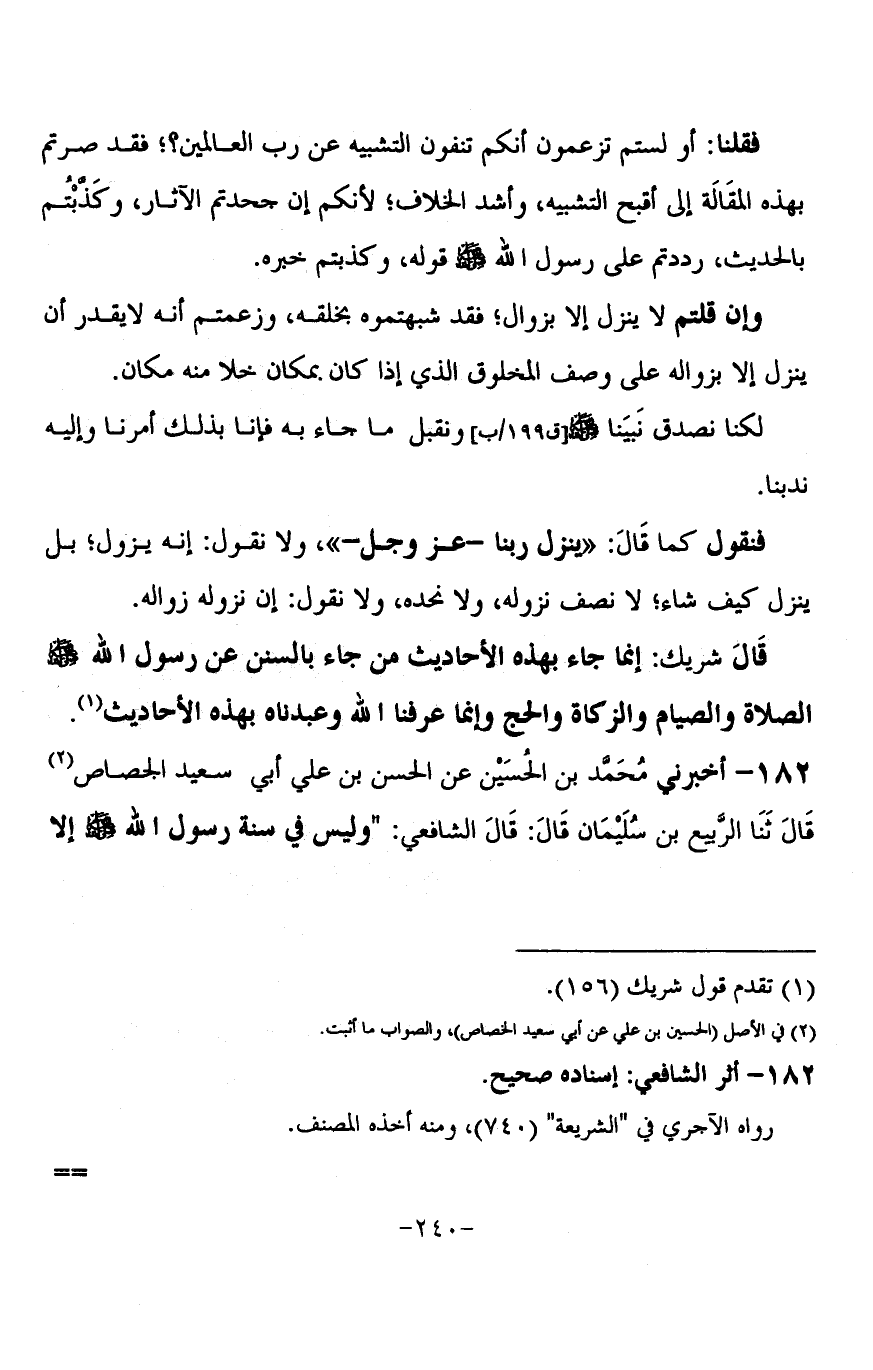 فقلنا: أو لستم تزعمون أنكم تنفون التشبيه عن رب العـالمين؟؛ فقـد صـرتم
بهذه المقَالَة إلى أقبح التشبيه، وأشد الخلاف؛ لأنكم إن جحدتم الآثـار، وكَذَّبْتُـم
بالحديث، رددتم على رسول الله ﷺ قوله، وكذبتم خبره.
وإن قلتم لا ينزل إلا بزوال؛ فقد شبهتموه بخلقـه، وزعمتـم أنـه لايقـدر أن
ينزل إلا بزواله على وصف المخلوق الذي إذا كان بمكان خلا منه مكان.
لكنا نصدق نَبيَنا ﷺ[ق١٩٩/ب] ونقبل مـا جـاء بـه فإنـا بذلـك أمرنـا وإليـه
ندبنا.
فنقول كما قَالَ: «ينزل ربنا –عـز وجـل–»، ولا نقـول: إنـه يـزول؛ بـل
ينزل كيف شاء؛ لا نصف نزوله، ولا نحده، ولا نقول: إن نزوله زواله.
قَالَ شريك: إنما جاء بهذه الأحاديث من جاء بالسنن عن رسول الله ﷺ
الصلاة والصيام والزكاة والحج وإنما عرفنا الله وعبدناه بهذه الأحاديث(١).
١٨٢– أخبرني مُحَمَّد بن الحُسَيْن عن الحسن بن علي أبي سـعيد الجصـاص(٢)
قَالَ ثَنَا الرَّبيع بن سُلَيْمَان قَالَ: قَالَ الشافعي: "وليس في سنة رسول الله ﷺ إلا
(١) تقدم قول شريك (١٥٦).
(٢) في الأصل (الحسين بن علي عن أبي سعيد الخصاص)، والصواب ما أثبت.
١٨٢– أثر الشافعي: إسناده صحيح.
رواه الآجري في "الشريعة" (٧٤٠)، ومنه أخذه المصنف.
==
–٢٤٠–